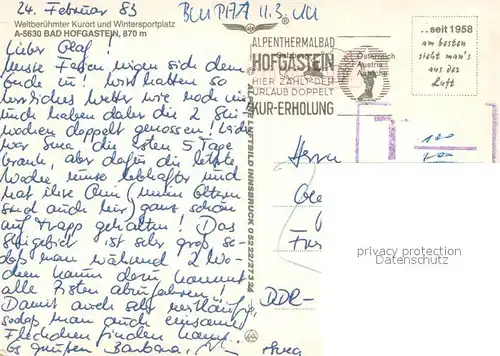 24. Februar 83
Weltberühmter Kurort und Wintersportplatz
A-5630 BAD HOFGASTEIN, 870 m
Lieber Olaf!
Unsre Ferien neigen sich dem
Ende zu! Wir hatten so
herrliches Wetter wie noch nie
und haben daher die 2 Ski-
wochen doppelt genossen! Leider
war Sina die ersten 5 Tage
krank, aber dafür die letzte
Woche umso lebhafter und
hat ihre Omi (meine Eltern
sind auch hier) ganz schön
auf Trapp gehalten! Das
Skigebiet ist sehr groß so-
daß man während 2 Wo-
chen kaum dazu kommt
alle Pisten abzufahren!
Damit auch sehr weitläufig,
sodaß man auch einsame
Fleckchen finden kann!
Es grüßen Barbara,
ALPENTHERMALBAD
HOFGASTEIN
HIER ZÄHLT DER
URLAUB DOPPELT
KUR-ERHOLUNG
Österreich
Austria
Autriche
...seit 1958
am besten
sieht man's
aus der
Luft
ALPINE LUFTBILD INNSBRUCK 05222/22737
Herrn
DDR-
privacy protection
oldthing.com